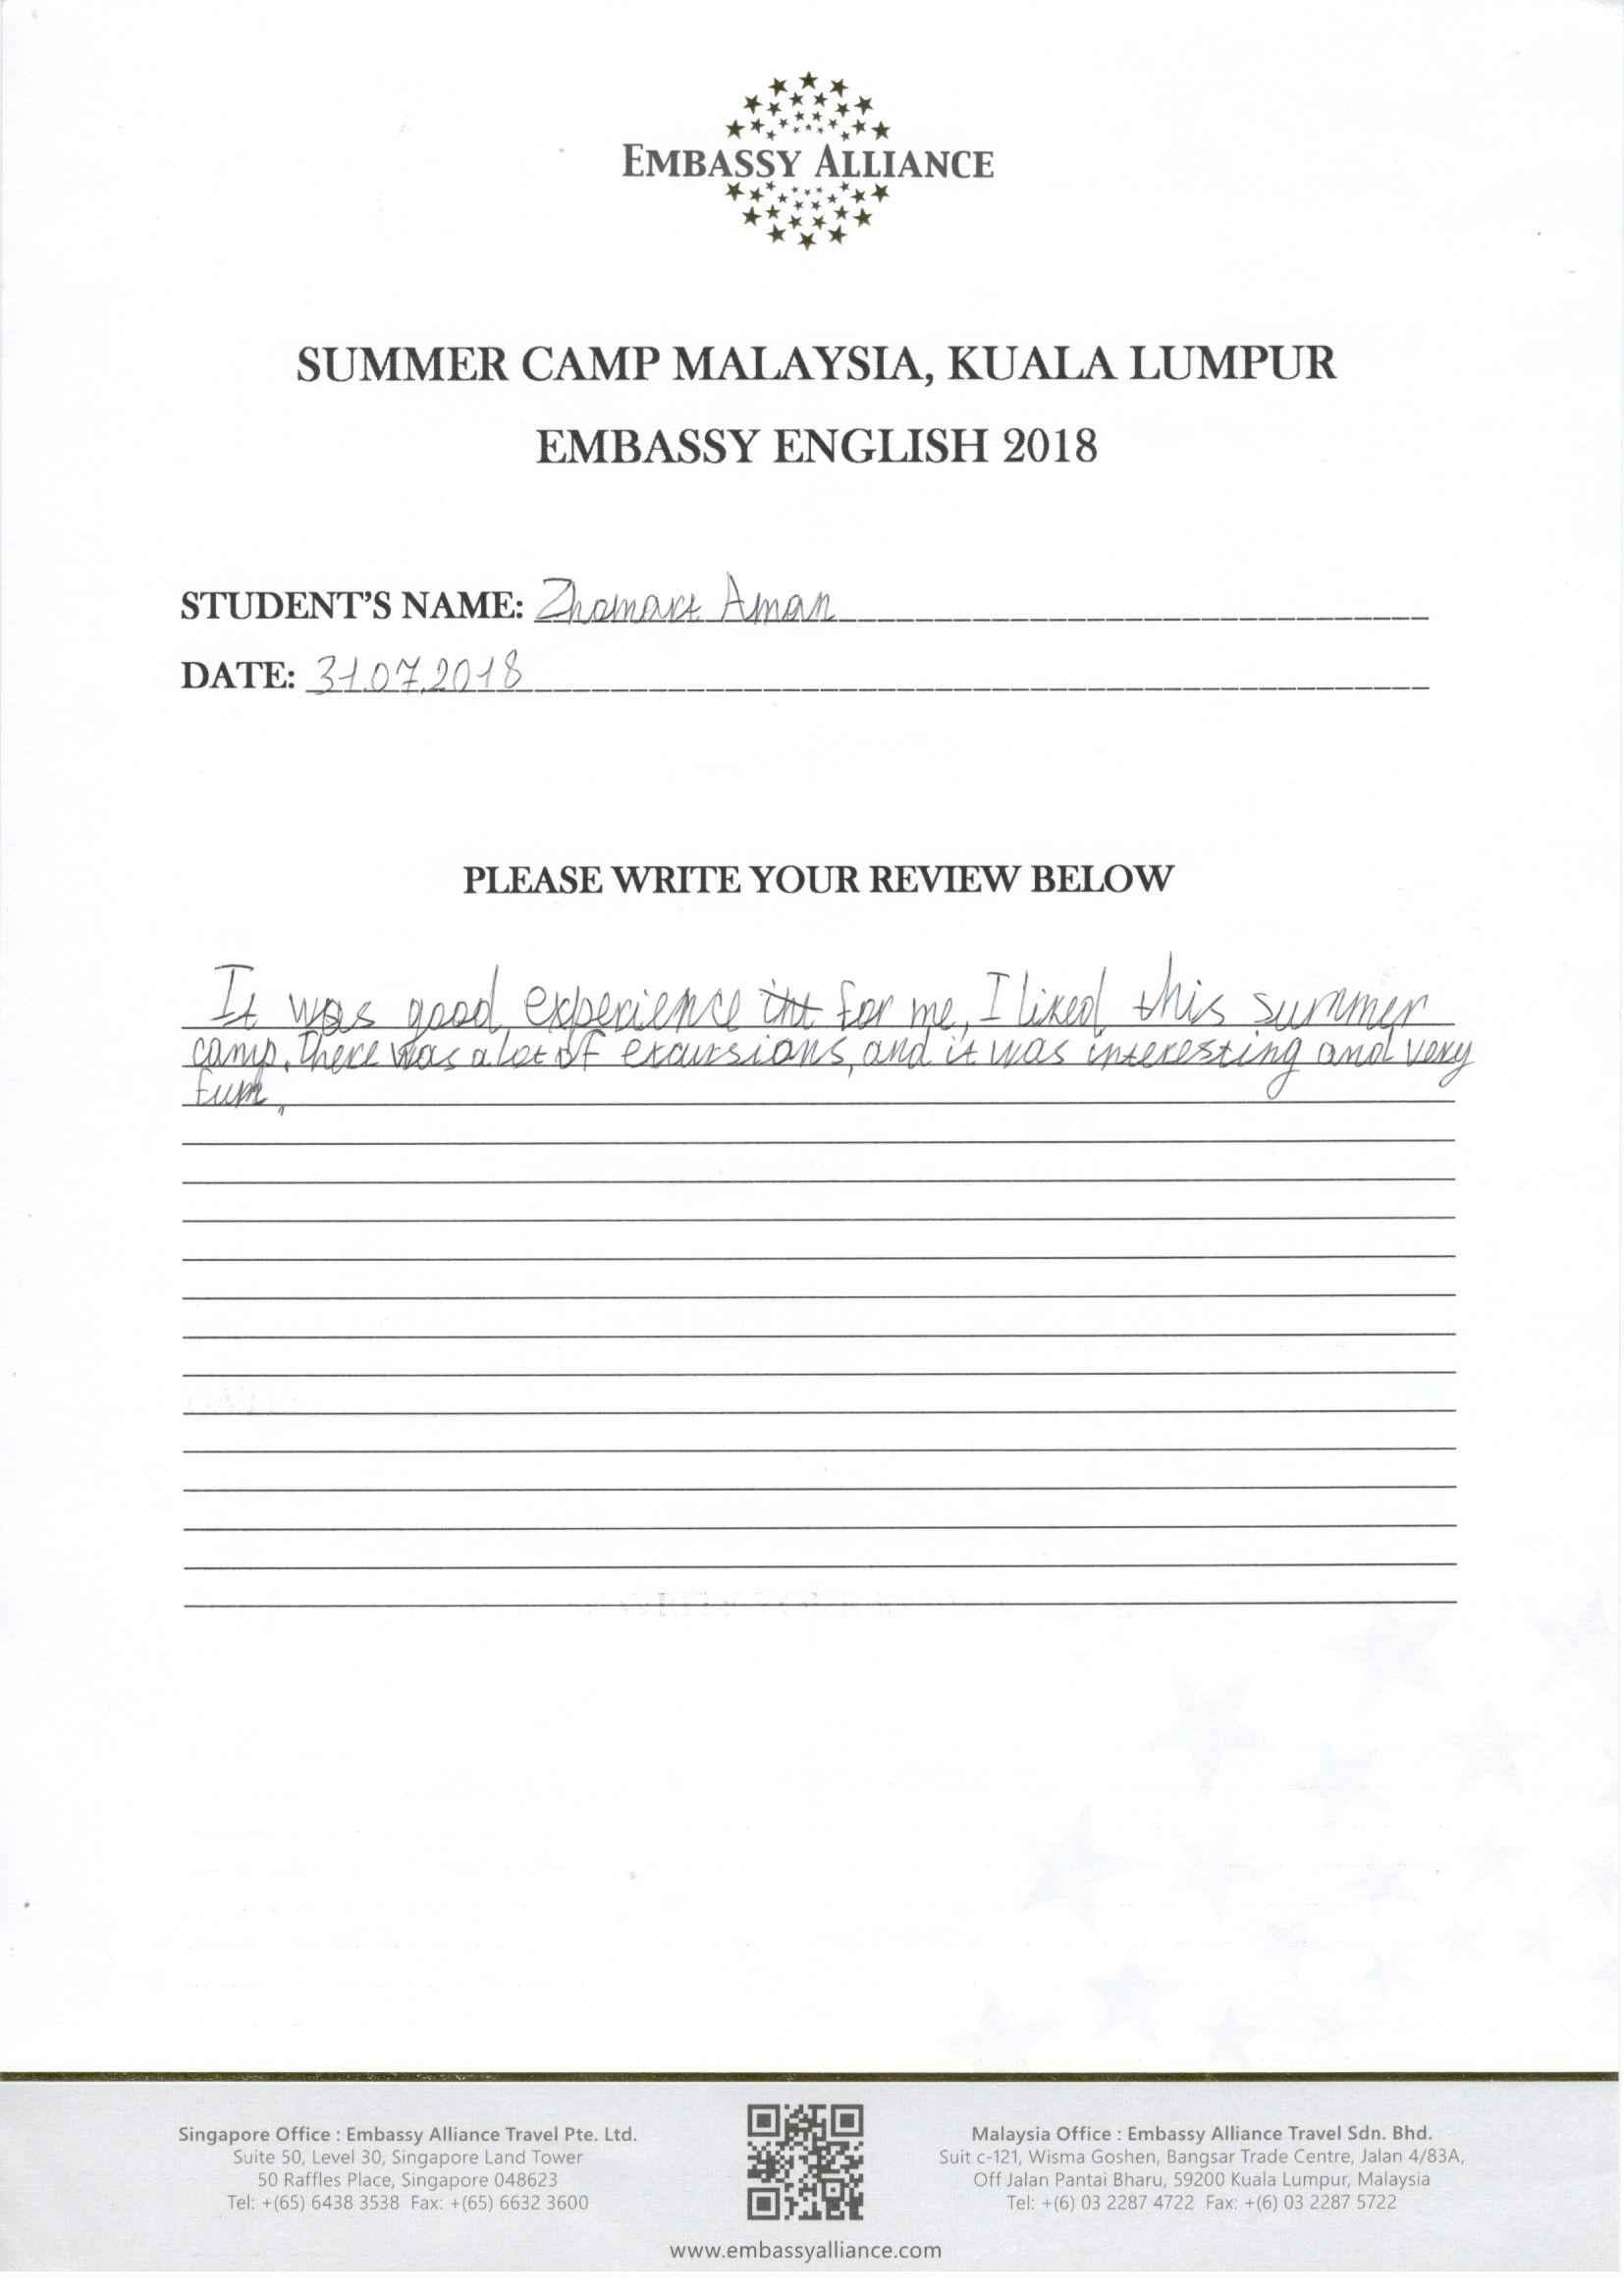 EMBASSY ALLIANCE
SUMMER CAMP MALAYSIA, KUALA LUMPUR
EMBASSY ENGLISH 2018
STUDENT'S NAME: Zhomart Aman
DATE: 31.07.2018
PLEASE WRITE YOUR REVIEW BELOW
It was good experience for me, I liked this summer
camp. There was a lot of excursions, and it was interesting and very
fun.
Singapore Office : Embassy Alliance Travel Pte. Ltd.
Suite 50, Level 30, Singapore Land Tower
50 Raffles Place, Singapore 048623
Tel: +(65) 6438 3538 Fax: +(65) 6632 3600
Malaysia Office : Embassy Alliance Travel Sdn. Bhd.
Suit c-121, Wisma Goshen, Bangsar Trade Centre, Jalan 4/83A,
Off Jalan Pantai Bharu, 59200 Kuala Lumpur, Malaysia
Tel: +(6) 03 2287 4722 Fax: +(6) 03 2287 5722
www.embassyalliance.com